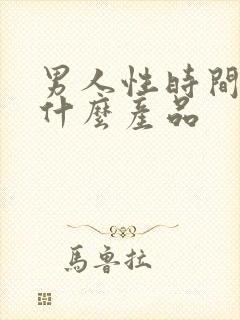 男人性時間
什麼產品
馬魯拉